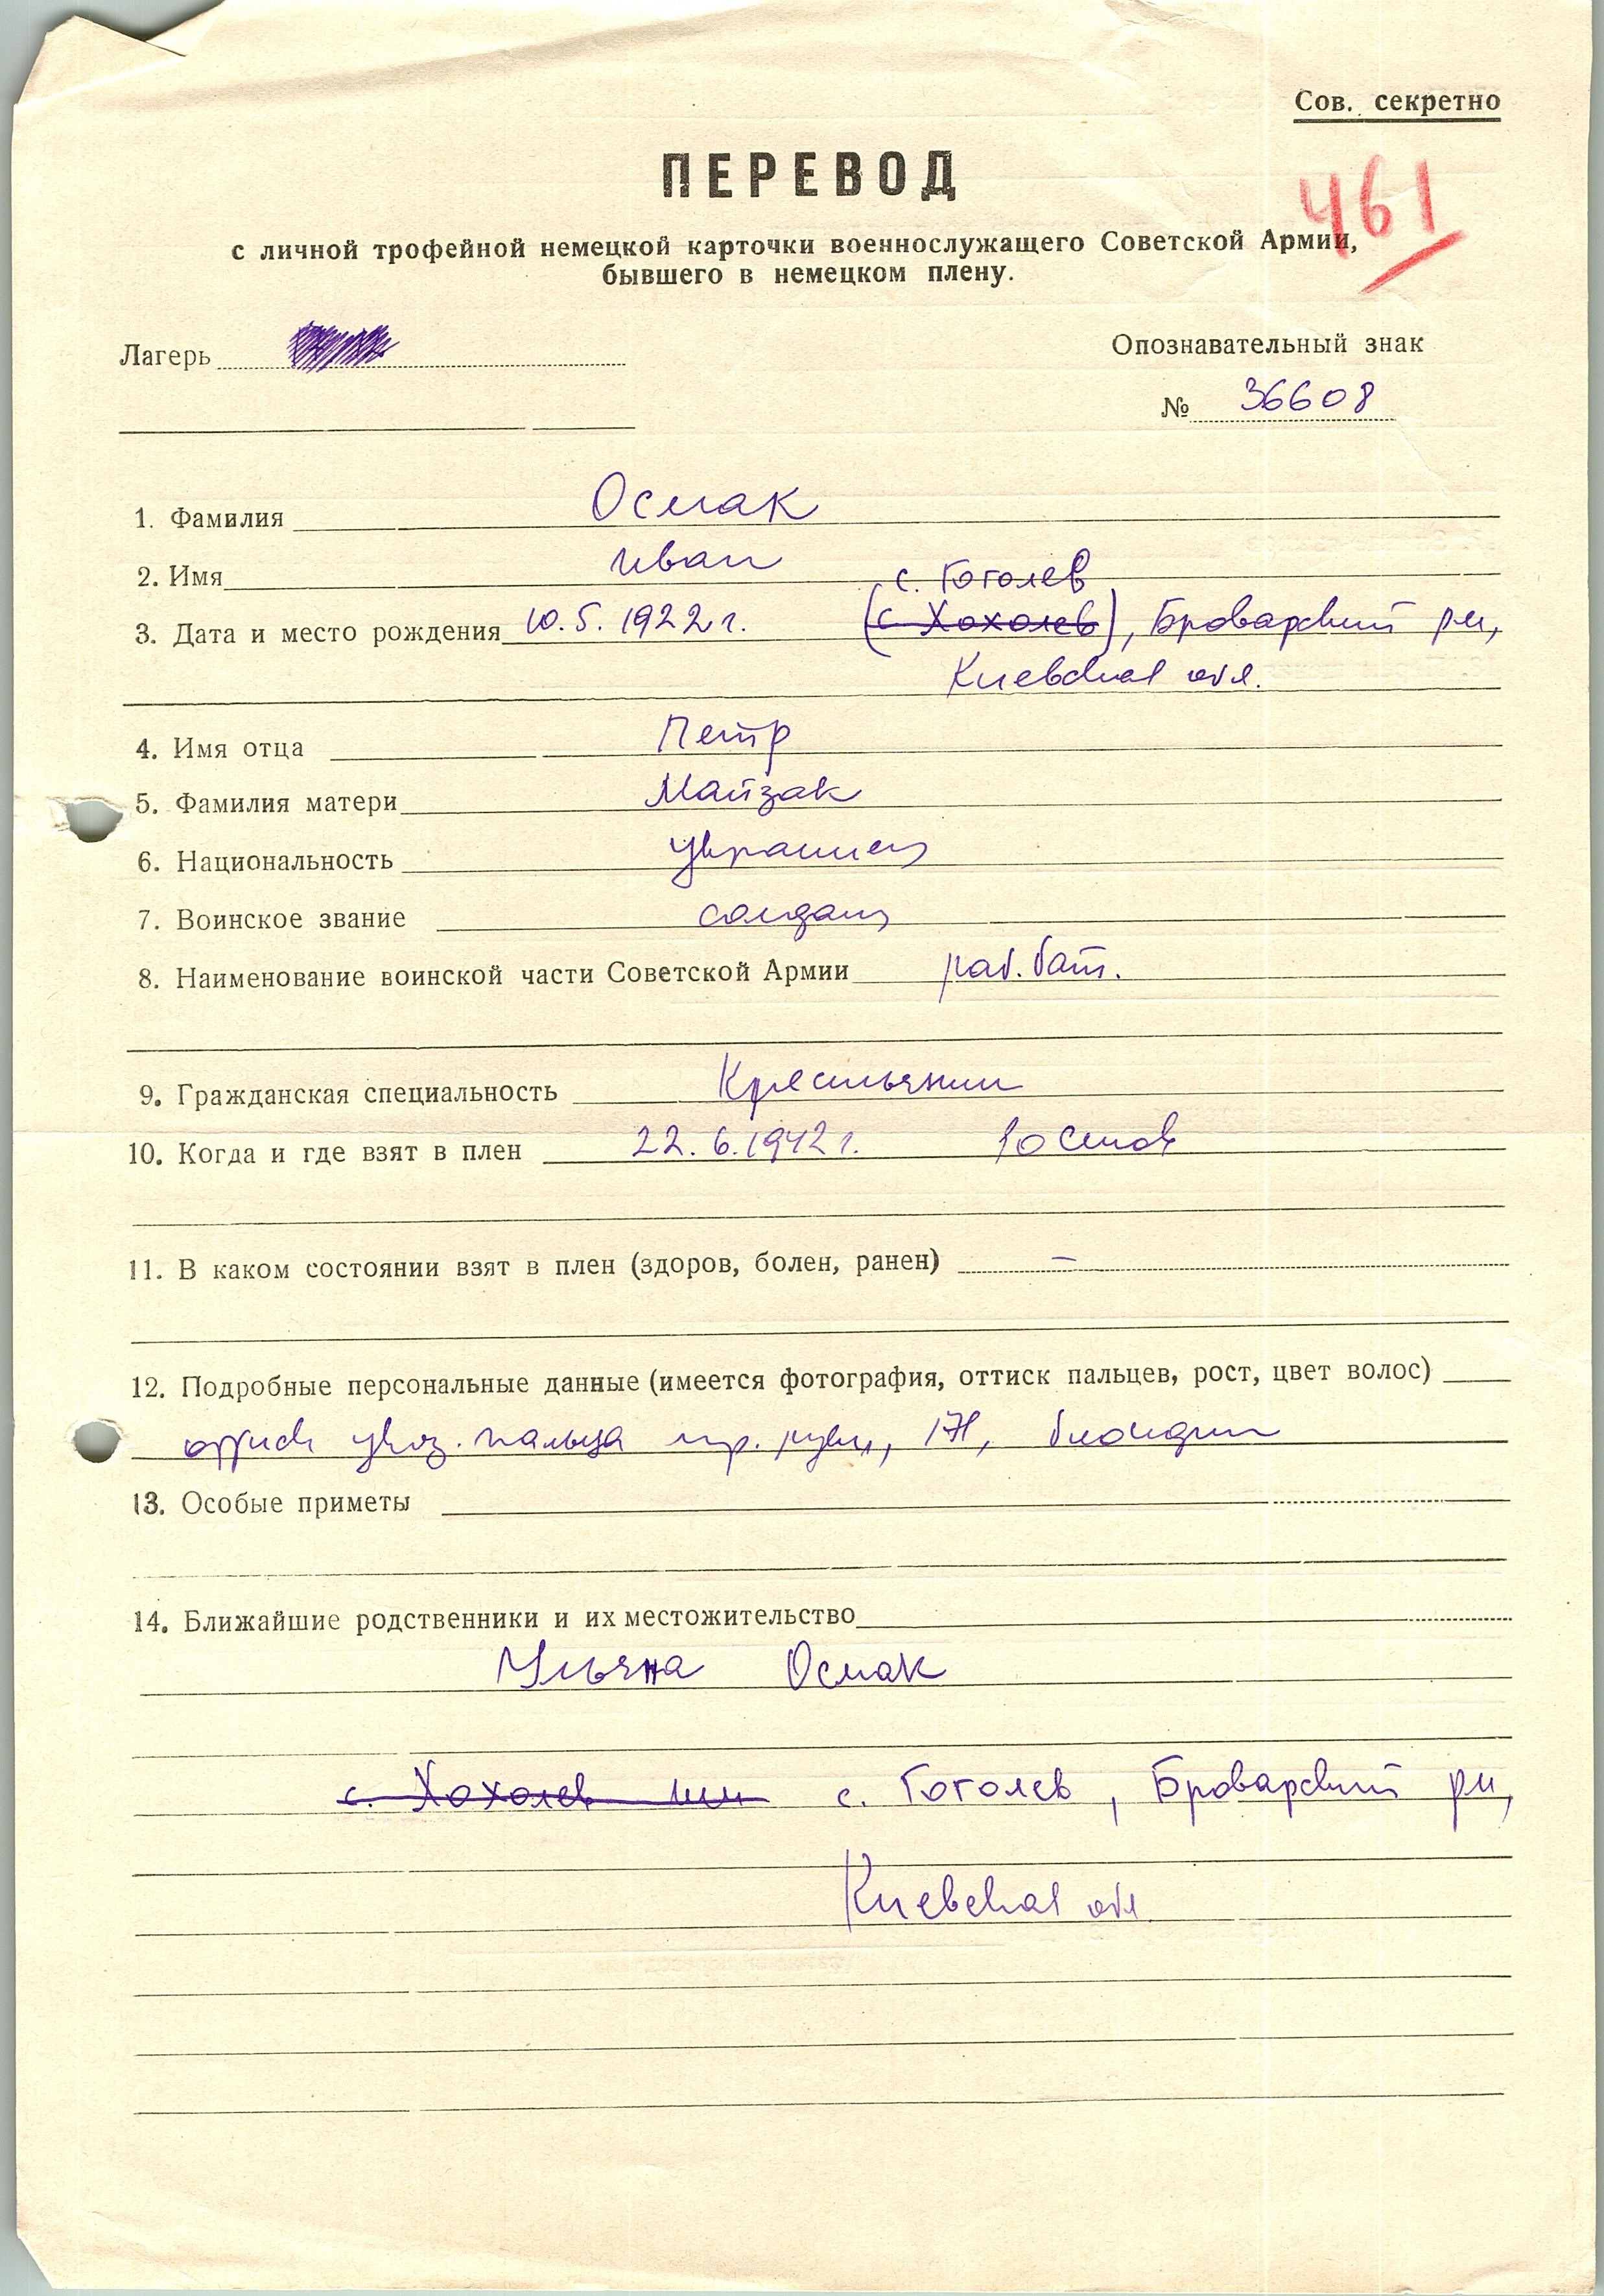 Сов. секретно
ПЕРЕВОД
461
с личной трофейной немецкой карточки военнослужащего Советской Армии,
бывшего в немецком плену.
Лагерь
Опознавательный знак
№ 36608
1. Фамилия Осмак
2. Имя Иван
с. Гоголев
3. Дата и место рождения 10.5.1922 г. (с. Хохолев), Броварский рн,
Киевская обл.
4. Имя отца Петр
5. Фамилия матери Майзак
6. Национальность украинец
7. Воинское звание солдат
8. Наименование воинской части Советской Армии раб. бат.
9. Гражданская специальность Крестьянин
10. Когда и где взят в плен 22.6.1942 г. Ростов
11. В каком состоянии взят в плен (здоров, болен, ранен) –
12. Подробные персональные данные (имеется фотография, оттиск пальцев, рост, цвет волос)
оттиск указ. пальца пр. руки, 171, блондин
13. Особые приметы
14. Ближайшие родственники и их местожительство
Ульяна Осмак
с. Хохолев или с. Гоголев, Броварский рн,
Киевская обл.